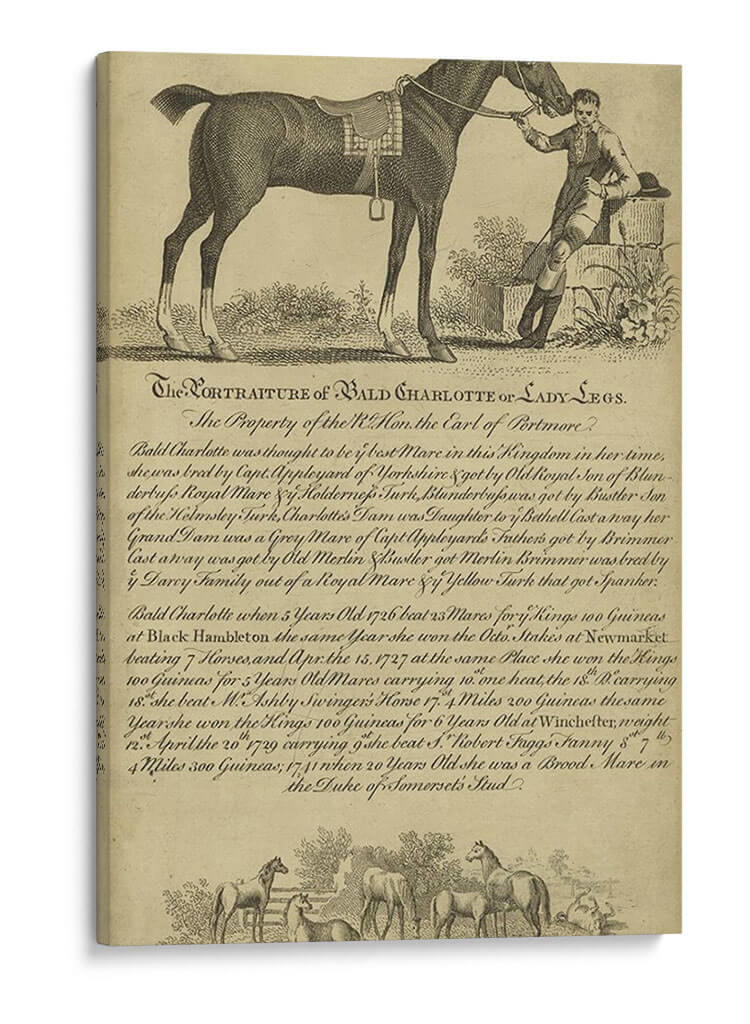 The PORTRAITURE of BALD CHARLOTTE or LADY LEGS.
The Property of the Rt. Hon. the Earl of Portmore.
Bald Charlotte was thought to be ye best Mare in this Kingdom in her time,
she was bred by Capt. Appleyard of Yorkshire & got by Old Royal Son of Blun-
derbuss Royal Mare & ye Holderness Turk, Blunderbuss was got by Bustler Son
of the Helmsley Turk, Charlotte's Dam was Daughter to ye Bethell Castaway her
Grand Dam was a Grey Mare of Capt Appleyards Fathers got by Brimmer
Castaway was got by Old Merlin & Bustler got Merlin Brimmer was bred by
ye Darcy Family out of a Royal Mare & ye Yellow Turk that got Spanker.
Bald Charlotte when 5 Years Old 1726 beat 23 Mares for ye Kings 100 Guineas
at Black Hambleton the same Year she won the Octo. Stakes at Newmarket
beating 7 Horses, and Apr. the 15, 1727 at the same Place she won the Kings
100 Guineas for 5 Years Old Mares carrying 10st. one heat, the 18th Do. carrying
18st she beat Mr. Ashby Swinger's Horse 17st 4 Miles 200 Guineas the same
Year she won the Kings 100 Guineas for 6 Years Old at Winchester, weight
12st. April the 20th 1729 carrying 9st she beat Sr. Robert Faggs Fanny 8st 7th
4 Miles 300 Guineas; 1741 when 20 Years Old she was a Brood Mare in
the Duke of Somerset's Stud.